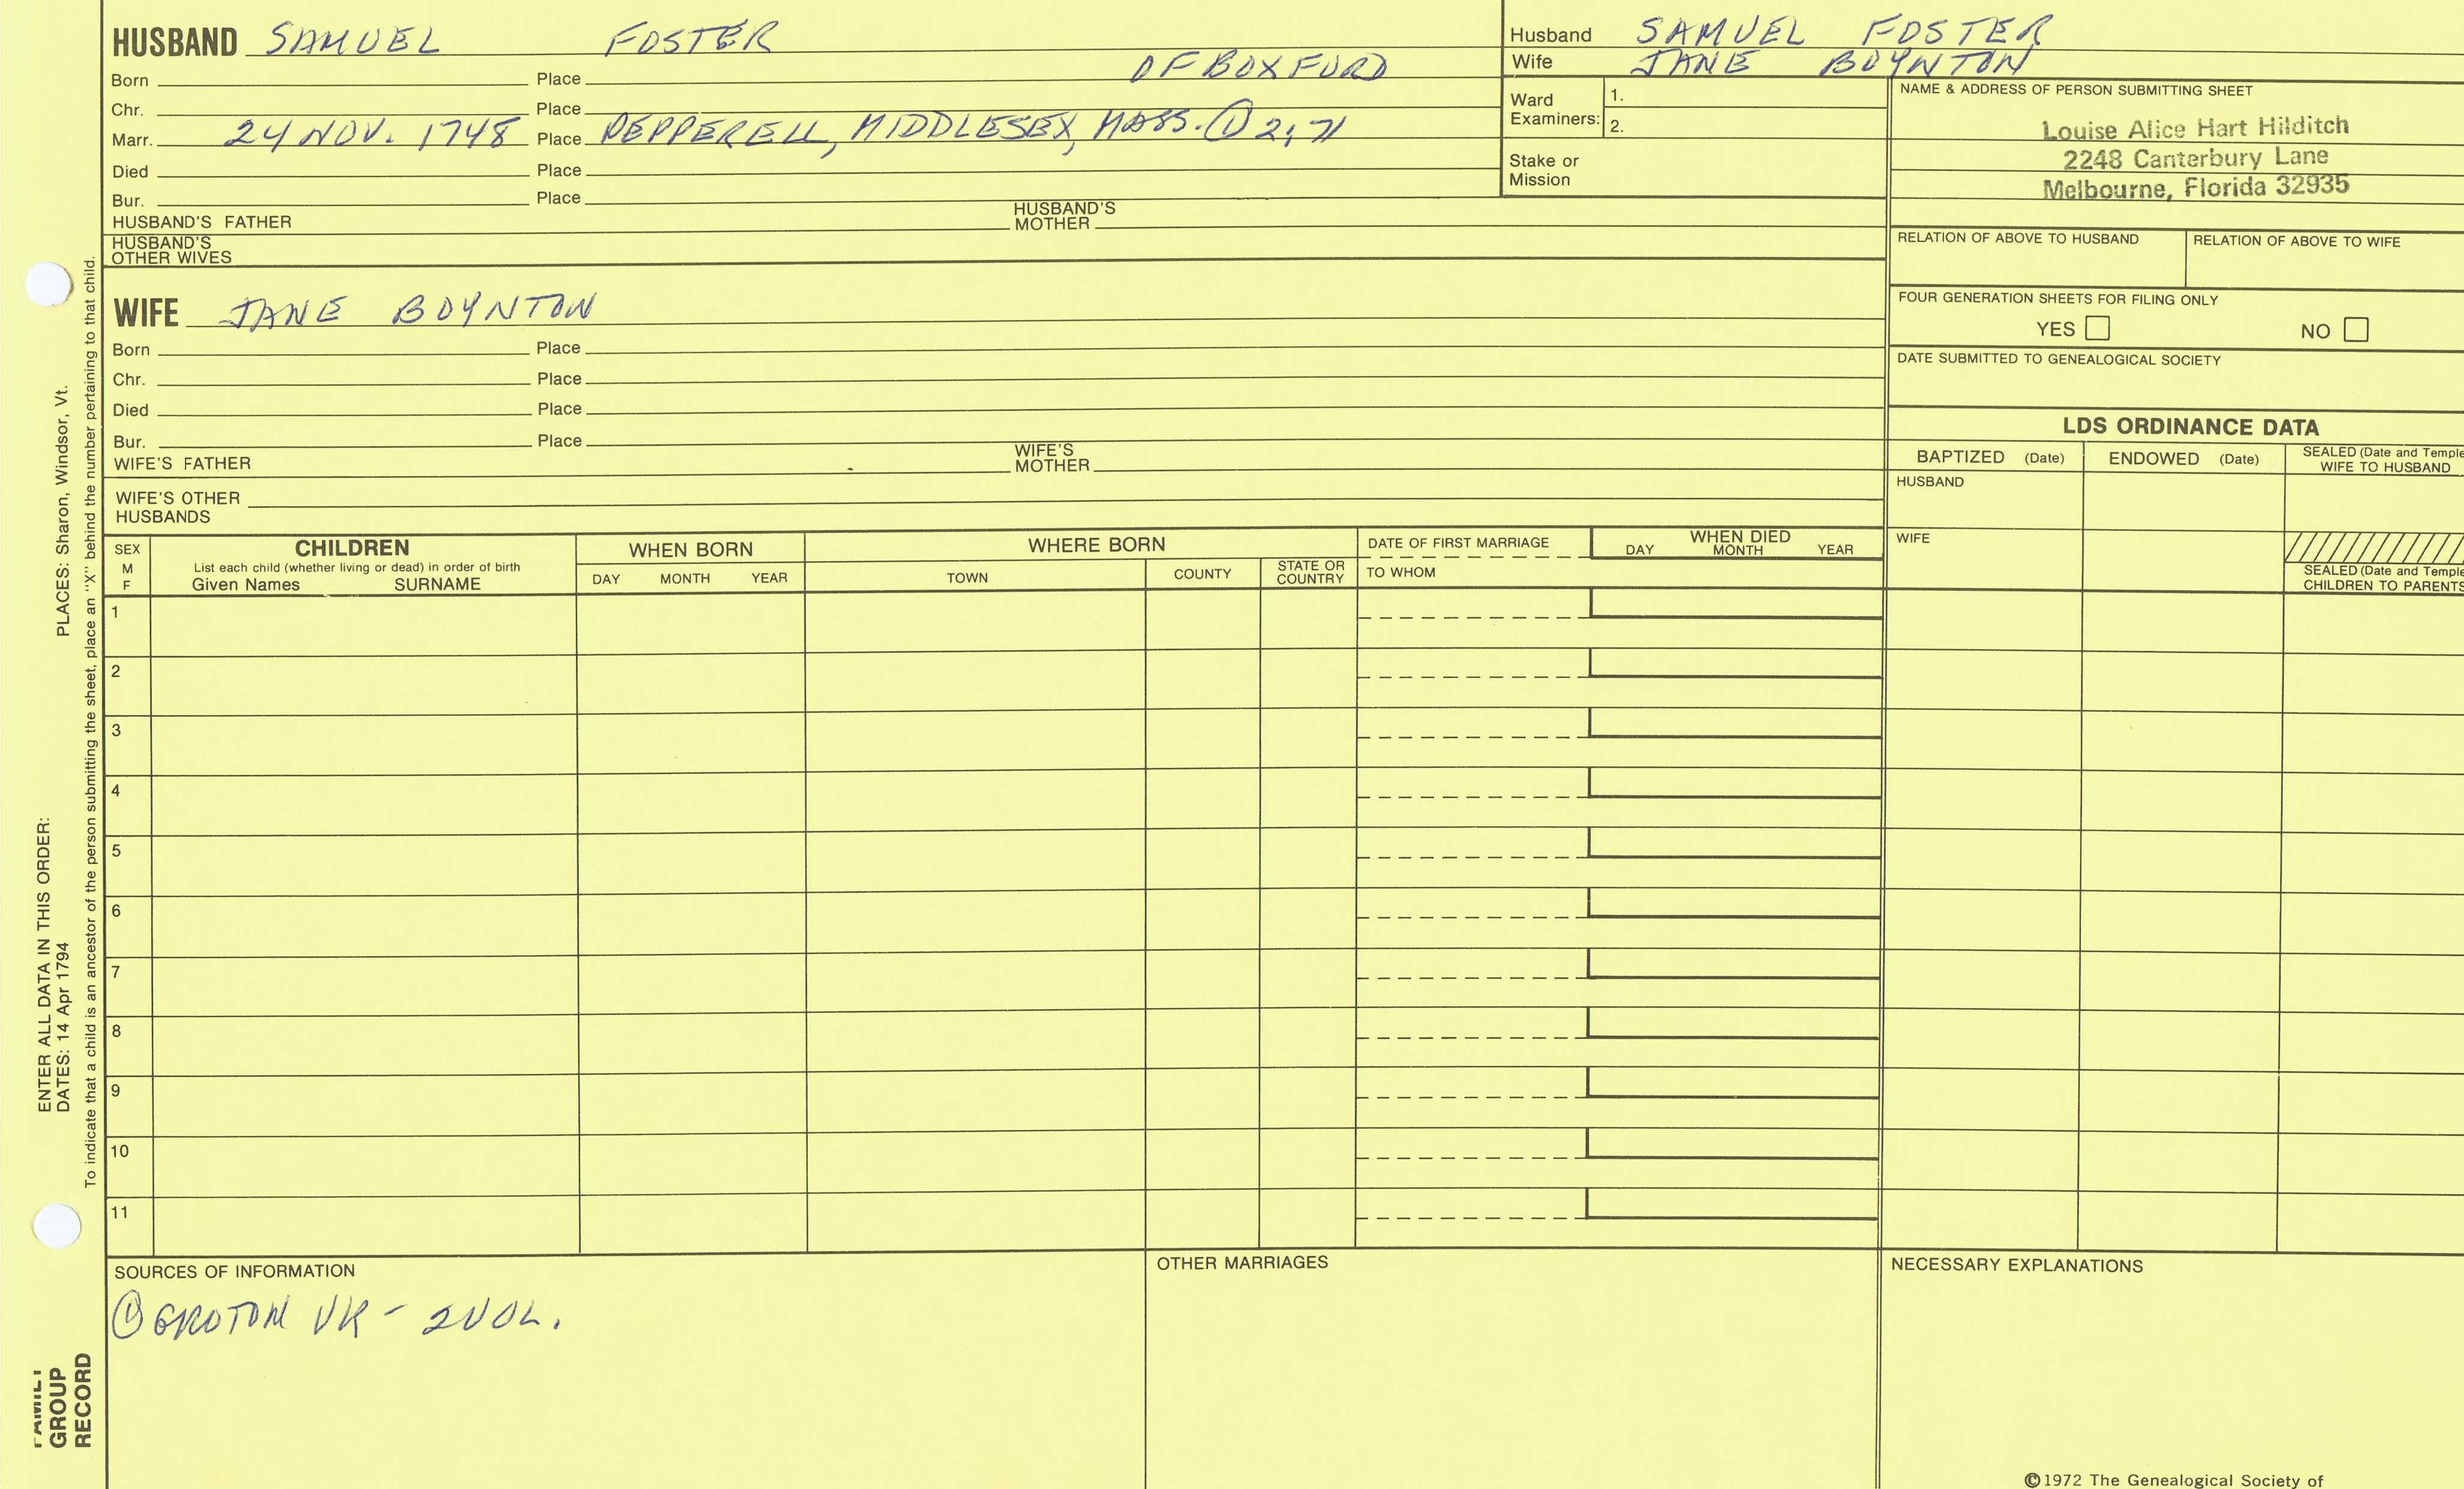 HUSBAND SAMUEL FOSTER
OF BOXFORD
Born Place
Chr. Place
Marr. 24 NOV. 1748 Place PEPPERELL, MIDDLESEX, MASS. ① 2, 71
Died Place
Bur. Place
HUSBAND'S FATHER HUSBAND'S MOTHER
HUSBAND'S OTHER WIVES
Husband SAMUEL FOSTER
Wife JANE BOYNTON
Ward Examiners: 1.
2.
Stake or Mission
NAME & ADDRESS OF PERSON SUBMITTING SHEET
Louise Alice Hart Hilditch
2248 Canterbury Lane
Melbourne, Florida 32935
RELATION OF ABOVE TO HUSBAND RELATION OF ABOVE TO WIFE
FOUR GENERATION SHEETS FOR FILING ONLY
YES NO
DATE SUBMITTED TO GENEALOGICAL SOCIETY
WIFE JANE BOYNTON
Born Place
Chr. Place
Died Place
Bur. Place
WIFE'S FATHER WIFE'S MOTHER
WIFE'S OTHER HUSBANDS
LDS ORDINANCE DATA
BAPTIZED (Date) ENDOWED (Date) SEALED (Date and Temple
WIFE TO HUSBAND
HUSBAND
WIFE
SEALED (Date and Temple
CHILDREN TO PARENTS
SEX
M
F
CHILDREN
List each child (whether living or dead) in order of birth
Given Names SURNAME
WHEN BORN
DAY MONTH YEAR
WHERE BORN
TOWN COUNTY STATE OR COUNTRY
DATE OF FIRST MARRIAGE
TO WHOM
WHEN DIED
DAY MONTH YEAR
1
2
3
4
5
6
7
8
9
10
11
SOURCES OF INFORMATION
① GROTON VR - 2 VOL.
OTHER MARRIAGES
NECESSARY EXPLANATIONS
©1972 The Genealogical Society of
PLACES: Sharon, Windsor, Vt.
ENTER ALL DATA IN THIS ORDER:
DATES: 14 Apr 1794
To indicate that a child is an ancestor of the person submitting the sheet, place an "X" behind the number pertaining to that child.
FAMILY
GROUP
RECORD